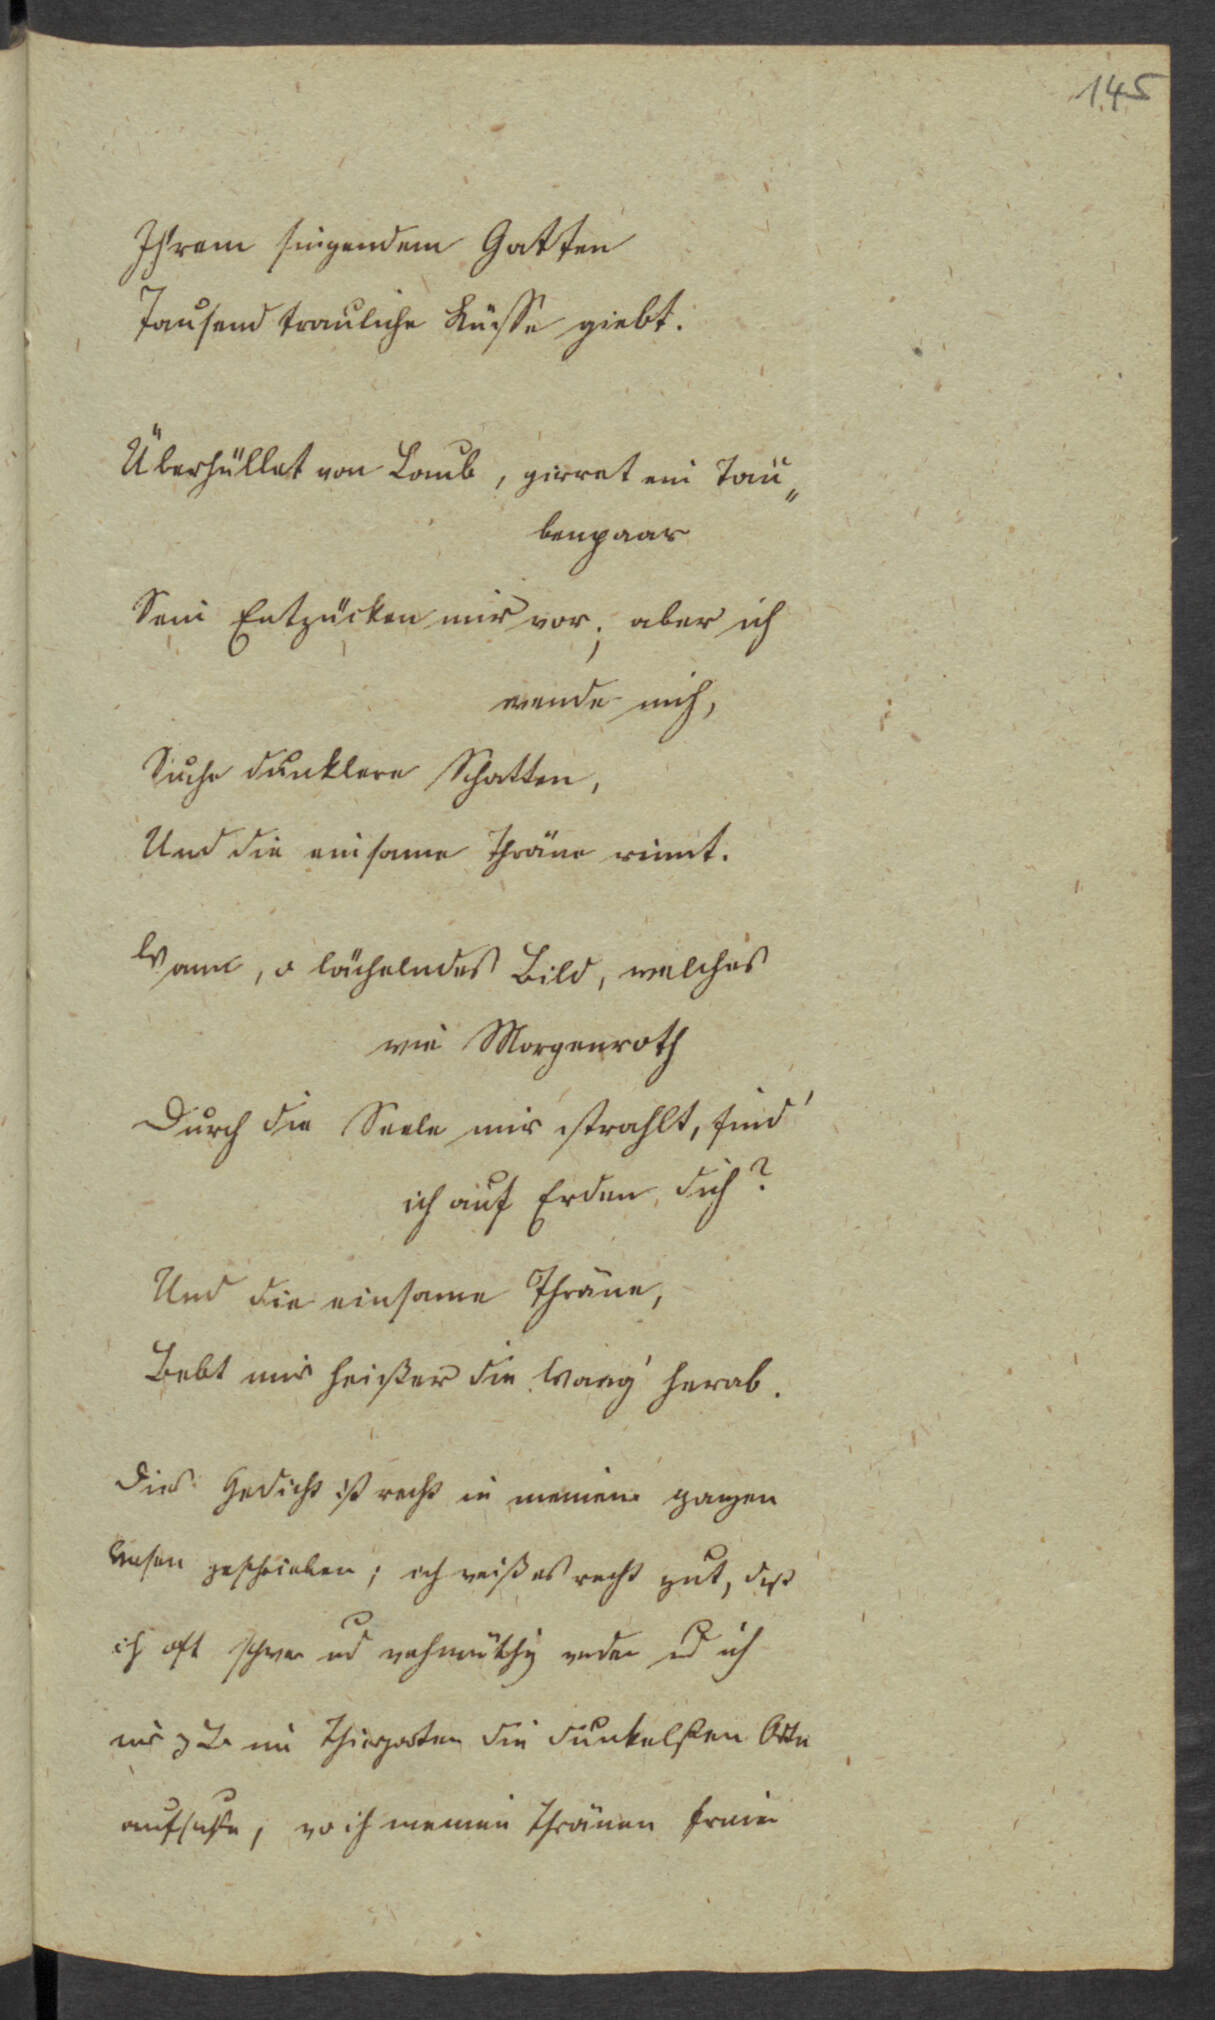 145
Ihrem singendem Gatten
Tausend trauliche Küsse giebt.
Überhüllet von Laub, girret ein Tau„
benpaar
Sein Entzücken mir vor; aber ich
wende mich,
Suche dunklere Schatten,
Und die einsame Thräne rinnt.
Wann, o lächelndes Bild, welches
wie Morgenroth
Durch die Seele mir strahlt, find'
ich auf Erden dich?
Und die einsame Thräne,
Bebt mir heißer die Wang' herab.
Dies Gedicht ist recht in meinem ganzen
Wesen geschrieben; ich weiß es recht gut, daß
ich oft schwer und wehmüthig werde und ich
mir z B. im Thiergarten die dunkelsten Orte
aufsuche, wo ich meinen Thränen freien